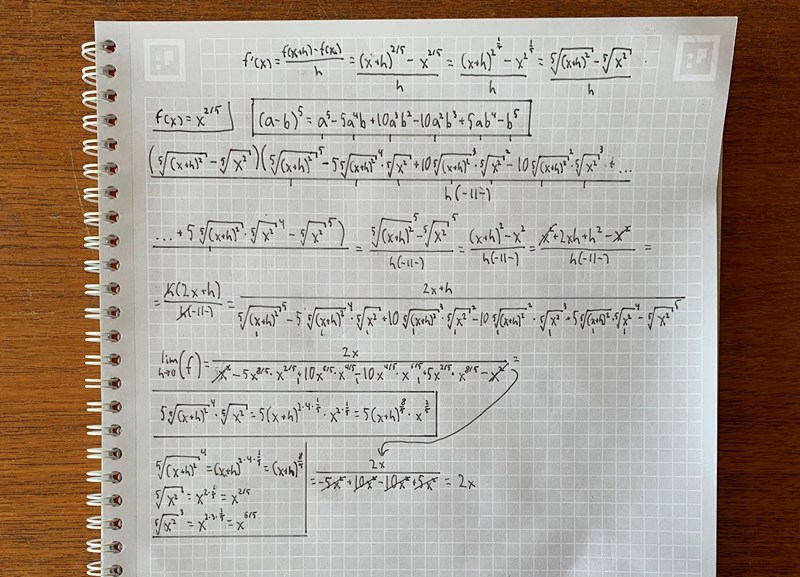 f'(x) = f(x+h) - f(x) / h = (x+h)^2/5 - x^2/5 / h = (x+h)^2^1/5 - x^2^1/5 / h = ⁵√(x+h)² - ⁵√x² / h
f(x) = x^2/5 (a-b)⁵ = a⁵ - 5a⁴b + 10a³b² - 10a²b³ + 5ab⁴ - b⁵
(⁵√(x+h)² - ⁵√x²)(⁵√(x+h)²⁵ - 5⁵√(x+h)²⁴ · ⁵√x² + 10⁵√(x+h)²³ · ⁵√x²² - 10⁵√(x+h)²² · ⁵√x²³ + ... / h(-11-)
... + 5⁵√(x+h)² · ⁵√x²⁴ - ⁵√x²⁵) = ⁵√(x+h)²⁵ - ⁵√x²⁵ / h(-11-) = (x+h)² - x² / h(-11-) = x² + 2xh + h² - x² / h(-11-) =
= h(2x+h) / h(-11-) = 2x+h / ⁵√(x+h)²⁵ - 5·⁵√(x+h)²⁴ · ⁵√x² + 10⁵√(x+h)²³ · ⁵√x²² - 10⁵√(x+h)²² · ⁵√x²³ + 5⁵√(x+h)² · ⁵√x²⁴ - ⁵√x²⁵
lim h→0 (f) = 2x / x² - 5x^8/5 · x^2/5 + 10x^6/5 · x^4/5 - 10x^4/5 · x^6/5 + 5x^2/5 · x^8/5 - x² =
5⁵√(x+h)²⁴ · ⁵√x² = 5(x+h)^2·4·1/5 · x^2·1/5 = 5(x+h)^8/5 · x^2/5
⁵√(x+h)²⁴ = (x+h)^2·4·1/5 = (x+h)^8/5
= 2x / -5x² + 10x² - 10x² + 5x² = 2x
⁵√x² = x^2·1/5 = x^2/5
⁵√x²³ = x^2·3·1/5 = x^6/5